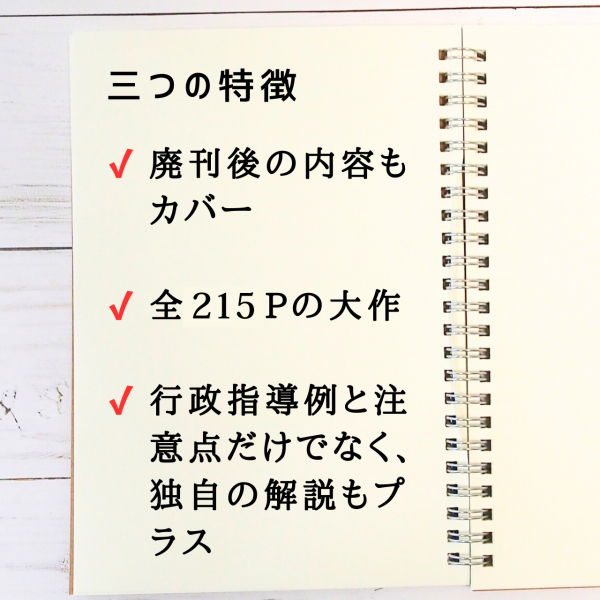 三つの特徴
✓ 廃刊後の内容も
カバー
✓ 全215Pの大作
✓ 行政指導例と注
意点だけでなく、
独自の解説もプ
ラス